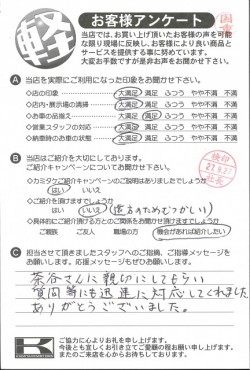 軽
お客様アンケート
当店では、お買い上げ頂いたお客様の声を可能
な限り現場に反映し、お客様により良い商品と
サービスを提供する事に努めています。
大変お手数ですが是非お声をお聞かせ下さい。
A 当店を実際にご利用になった印象をお聞かせ下さい。
◇店の印象 大満足 満足 ふつう やや不満 不満
◇店内・展示場の清掃 大満足 満足 ふつう やや不満 不満
◇お車の品揃え 大満足 満足 ふつう やや不満 不満
◇営業スタッフの対応 大満足 満足 ふつう やや不満 不満
◇納車時のお車の状態 大満足 満足 ふつう やや不満 不満
B 当店はご紹介を大切にしております。
ご紹介キャンペーンについてお聞かせ下さい。
◇カミタケご紹介キャンペーンのご説明はありましたでしょうか
はい いいえ
◇ご紹介を頂けますでしょうか
はい いいえ (遠方のためむつかしい)
◇具体的にご紹介頂ける方とのご関係をお聞かせ頂けますでしょうか
ご親族 ご友人 職場の方 機会があれば紹介したい
検印
C 担当させて頂きましたスタッフへのご指摘、ご指導メッセージを
お願いします。応援メッセージもぜひお願いします。
茶谷さんに親切にしてもらい
質問等にも迅速に対応してくれました
ありがとうございました。
K
ご協力に心よりお礼を申し上げます。
今後とも宜しくお引き立てご愛顧の程お願い申し上げます。
またのご来店を心からお待ちしております。